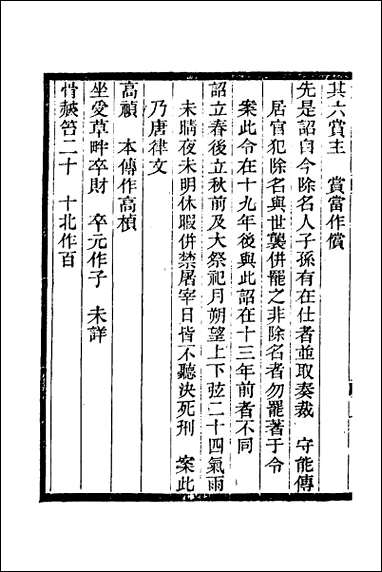 其六賞主　賞當作償
先是詔自今除名人子孫有在仕者並取奏裁　守能傳
居官犯除名與世襲併罷之非除名者勿罷著于令
案此令在十九年後與此詔在十三年前者不同
詔立春後立秋前及大祭祀月朔望上下弦二十四氣雨
未晴夜未明休暇併禁屠宰日皆不聽決死刑　案此
乃唐律文
高禎　本傳作高楨
坐受草畔卒財　卒元作子　未詳
背笞二十　十北作百